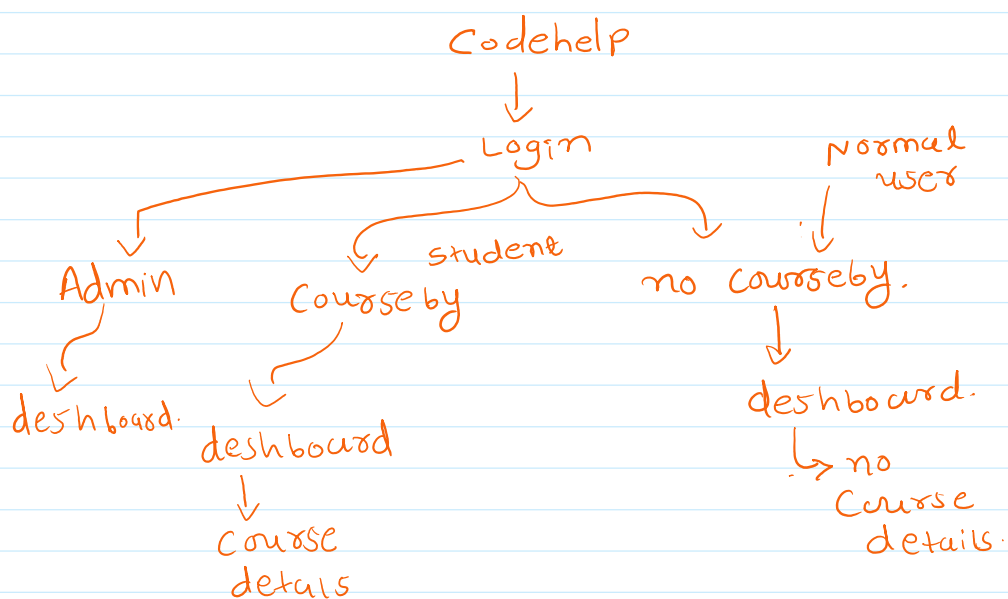 Codehelp
Login
Normal
user
student
Admin
Courseby
no courseby.
deshboard.
deshboard
deshboard.
no
Course
details.
Course
detals